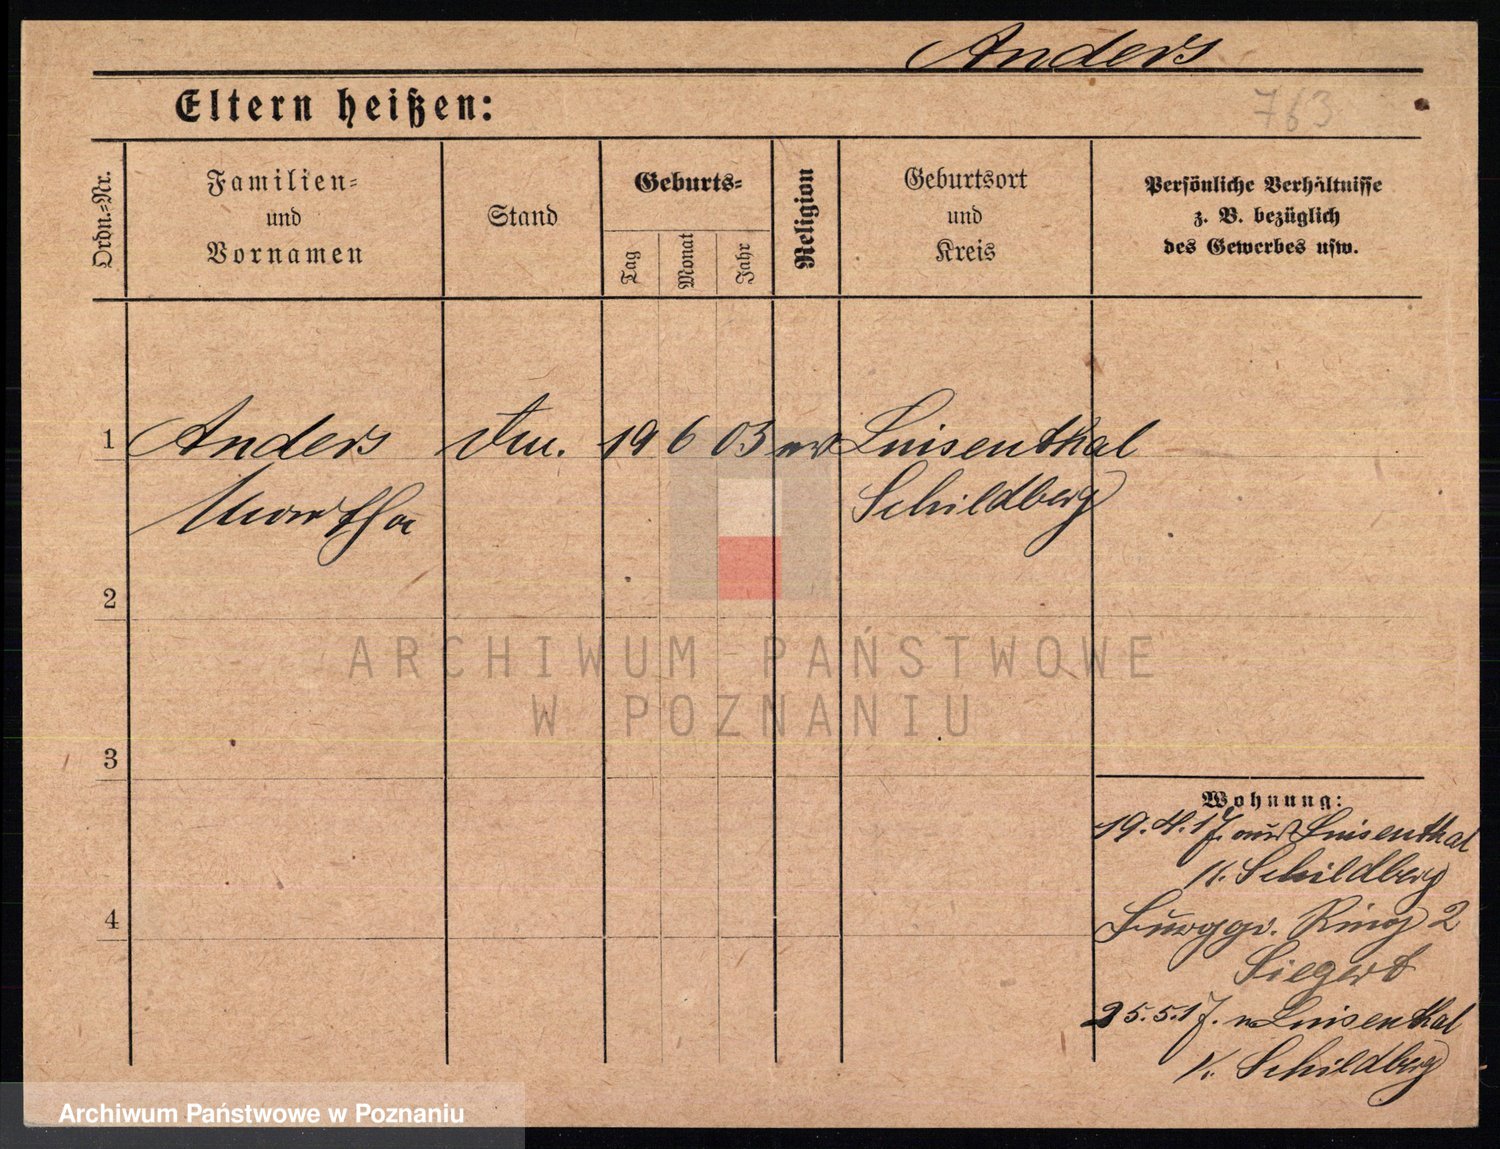 Anders
763
Eltern heißen:
Ordn.=Nr.
Familien=
und
Vornamen
Stand
Geburts=
Tag
Monat
Jahr
Religion
Geburtsort
und
Kreis
Persönliche Verhältnisse
z. B. bezüglich
des Gewerbes usw.
1 Anders 19 6 03 ev Luisenthal
Martha Schildberg
2
3
4
Wohnung:
19.4.17. aus Luisenthal
K. Schildberg
Burggr. Ring 2
Siegert
25.5.17. n Luisenthal
K. Schildberg
ARCHIWUM PAŃSTWOWE
W POZNANIU
Archiwum Państwowe w Poznaniu